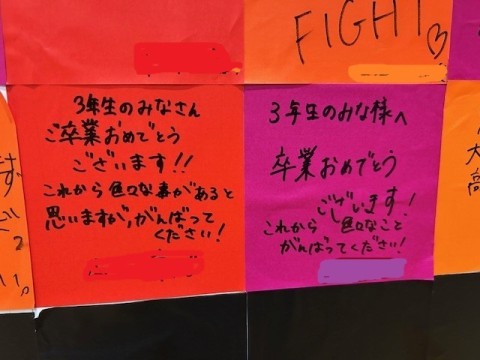 FIGHT♡
3年生のみなさん
ご卒業おめでとう
ございます!!
これから色々な事があると
思いますが、がんばって
ください!
3年生のみな様へ
卒業おめでとう
ございます!
これから 色々なこと
がんばってください!